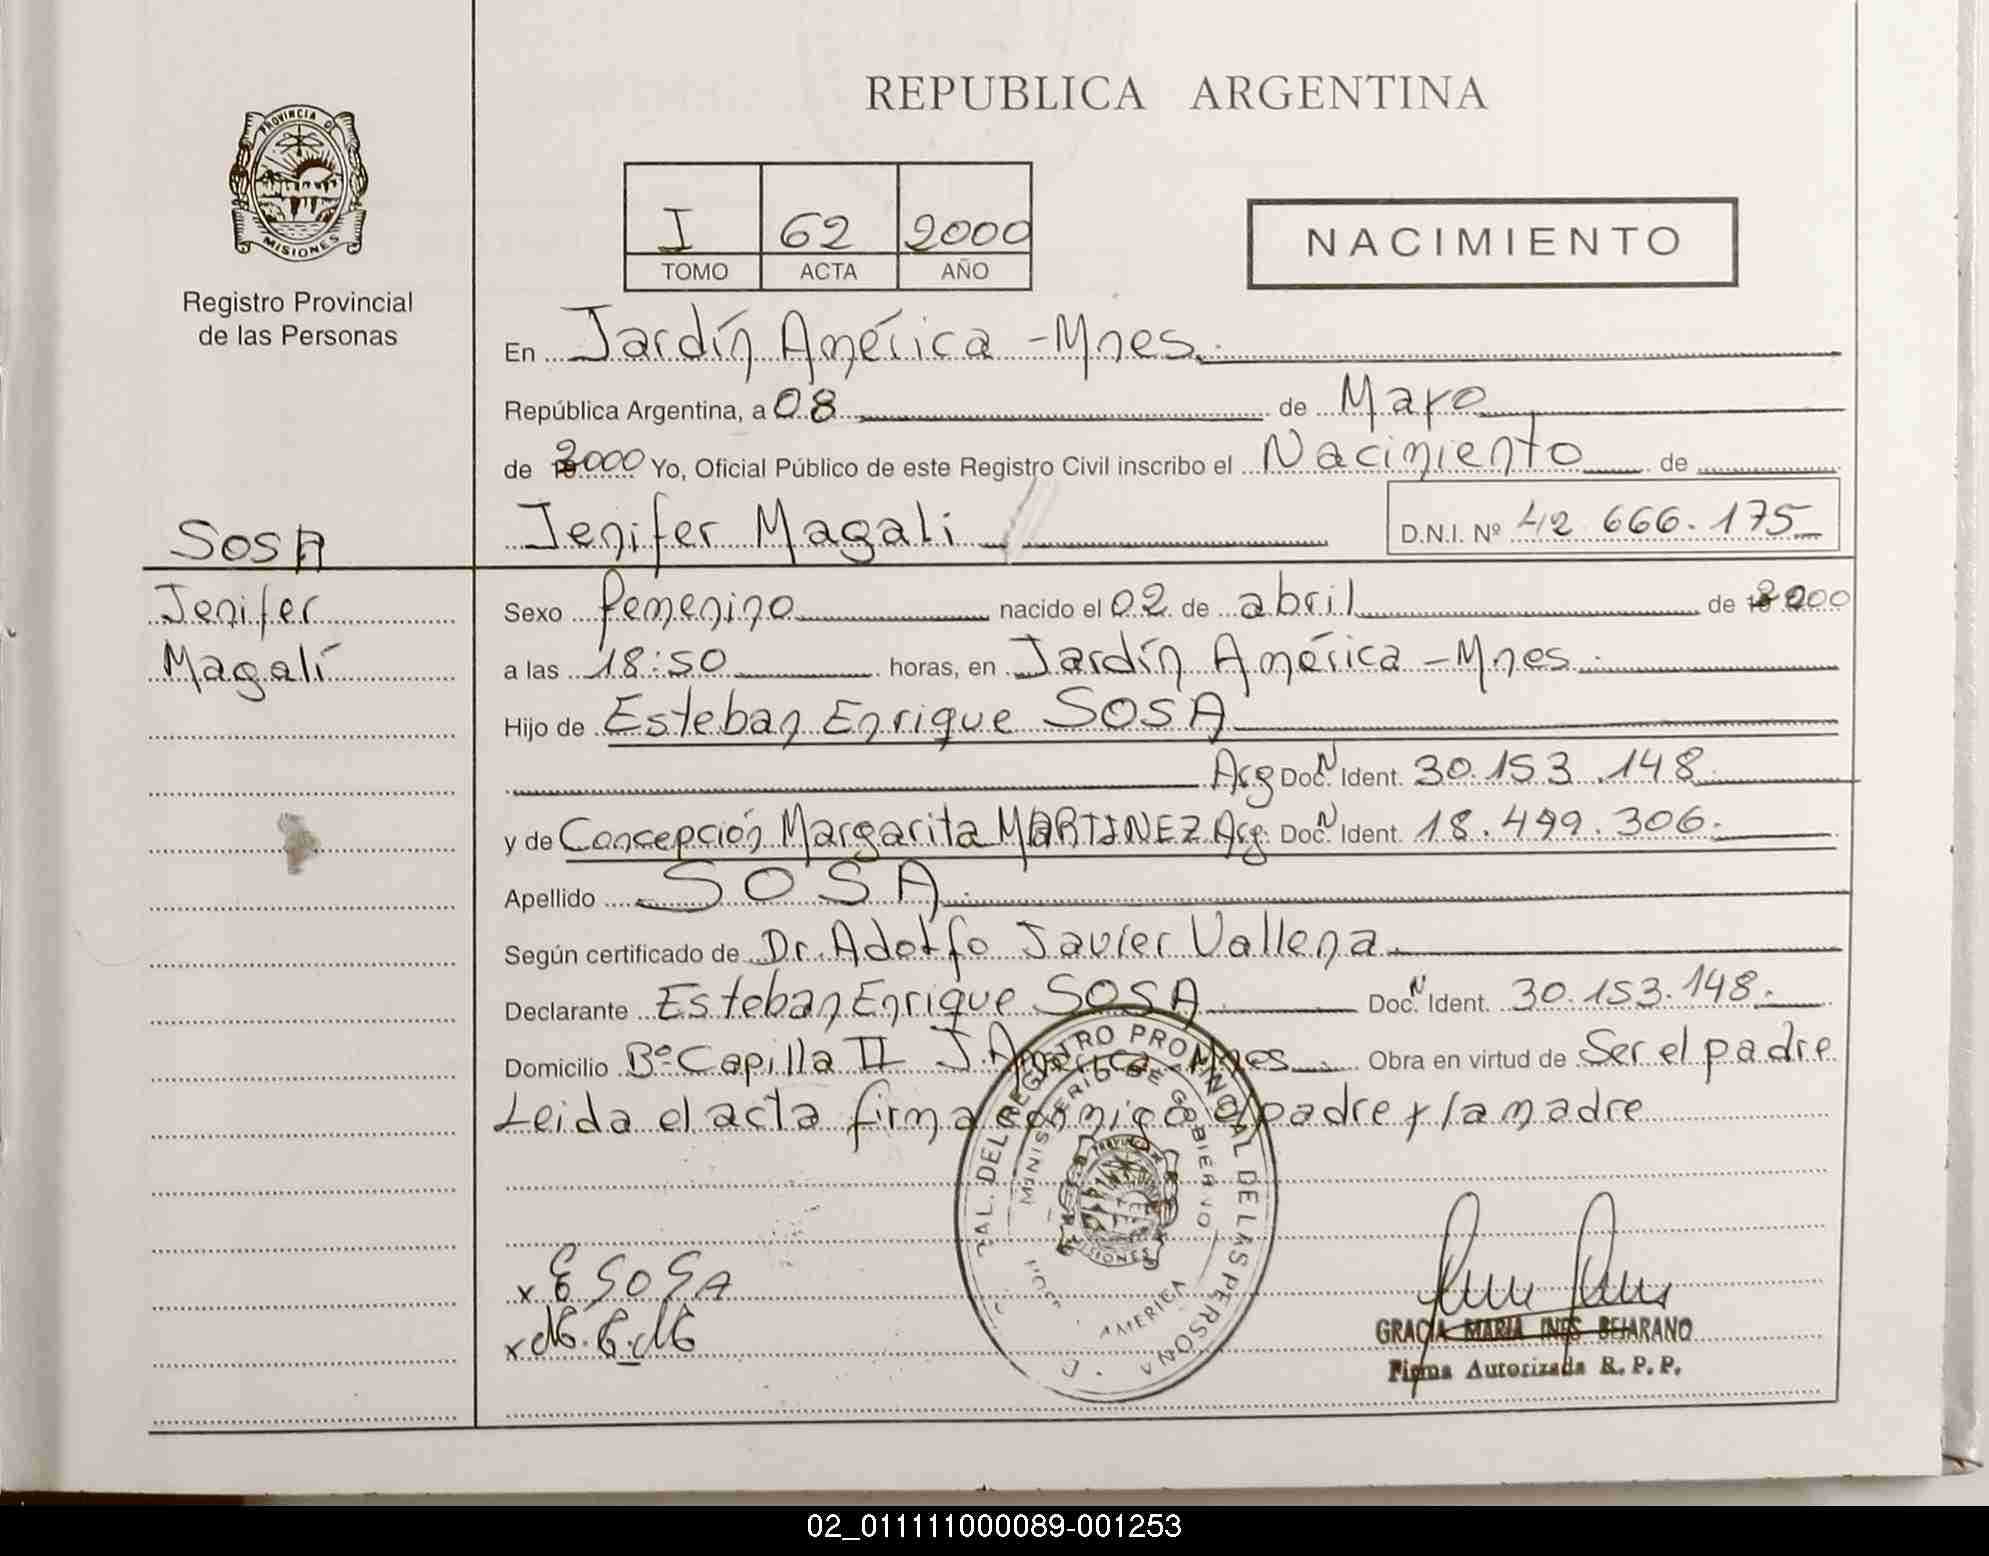 REPUBLICA ARGENTINA
PROVINCIA DE
MISIONES
Registro Provincial
de las Personas
I 62 2000
TOMO ACTA AÑO
NACIMIENTO
En Jardín América - Mnes.
República Argentina, a 08 de Mayo
de 2000 Yo, Oficial Público de este Registro Civil inscribo el Nacimiento de
Jenifer Magali D.N.I. Nº 42.666.175
SOSA
Jenifer
Magalí
Sexo femenino nacido el 02 de abril de 2000
a las 18:50 horas, en Jardín América - Mnes.
Hijo de Esteban Enrique SOSA
Arg Doc. N Ident. 30.153.148
y de Concepción Margarita MARTINEZ Arg. Doc. N Ident. 18.499.306.
Apellido SOSA.
Según certificado de Dr. Adolfo Javier Vallena
Declarante Esteban Enrique SOSA Doc. N Ident. 30.153.148.
Domicilio Bº Capilla II J. América Mnes. Obra en virtud de Ser el padre
Leida el acta firma conmigo el padre y la madre
DEL REGISTRO PROVINCIAL DE LAS PERSONA
MINISTERIO DE GOBIERNO
MISIONES
AMERICA
x E SOSA
x M. C. M
GRACIA MARIA INES BEJARANO
Firma Autorizada R. P. P.
02_011111000089-001253